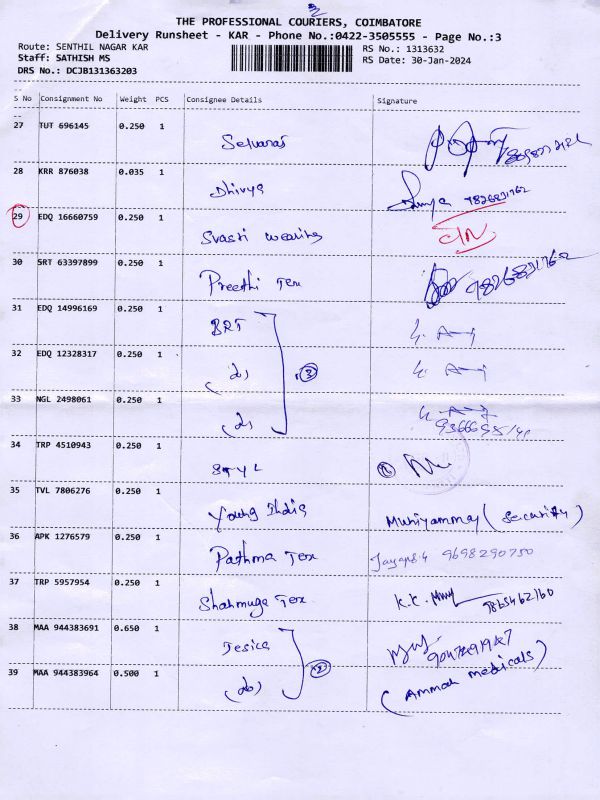 THE PROFESSIONAL COURIERS, COIMBATORE
Delivery Runsheet - KAR - Phone No.:0422-3505555 - Page No.:3
Route: SENTHIL NAGAR KAR RS No.: 1313632
Staff: SATHISH MS RS Date: 30-Jan-2024
DRS No.: DCJB131363203
S No Consignment No Weight PCS Consignee Details Signature
27 TUT 696145 0.250 1
Selvaraj
28 KRR 876038 0.035 1
Dhivya 9826831762
29 EDQ 16660759 0.250 1
Svasti wearing
30 SRT 63397899 0.250 1
Preethi Tex 9826831762
31 EDQ 14996169 0.250 1
BRT
32 EDQ 12328317 0.250 1
(do) 3
33 NGL 2498061 0.250 1
(do)
34 TRP 4510943 0.250 1
STYL
35 TVL 7806276 0.250 1
Young India Muniyammay (Security)
36 APK 1276579 0.250 1
Pathma Tex 9698290750
37 TRP 5957954 0.250 1
Shahmuga Tex K.C. 9865462160
38 MAA 944383691 0.650 1
Jesica
39 MAA 944383964 0.500 1
(do) 2 (Ammah medicals)